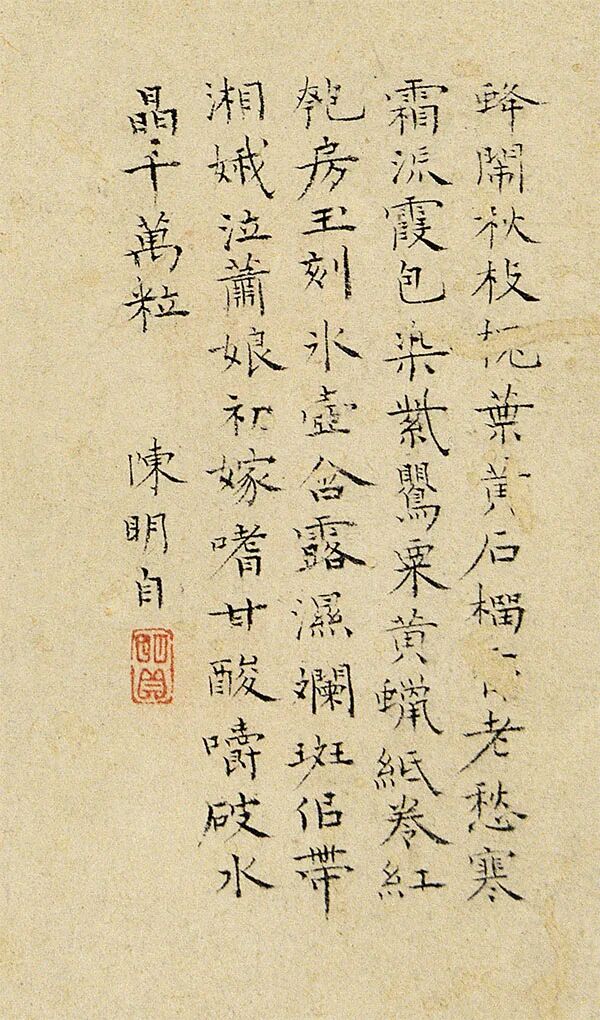 蜂鬧秋枝葉黃石橊老愁寒
霜派霞包染紫鸎粟黃蠟紙卷紅
匏房玉刻氷壺含露濕斕斑佀帶
湘娥泣蕭娘初嫁嗜甘酸嚼破水
晶千萬粒
陳明自